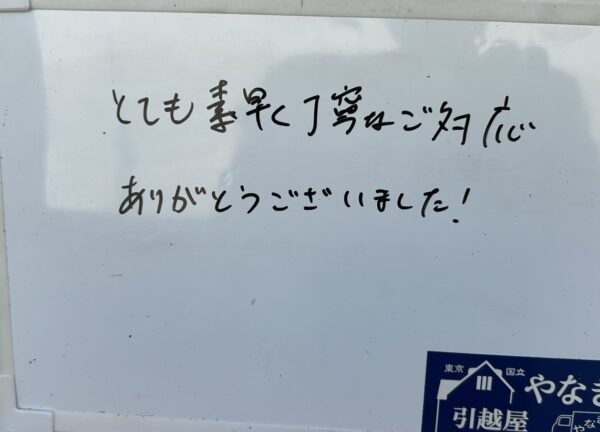 とても素早く丁寧なご対応
ありがとうございました!
東京 国立
やなぎ
引越屋
やなぎ